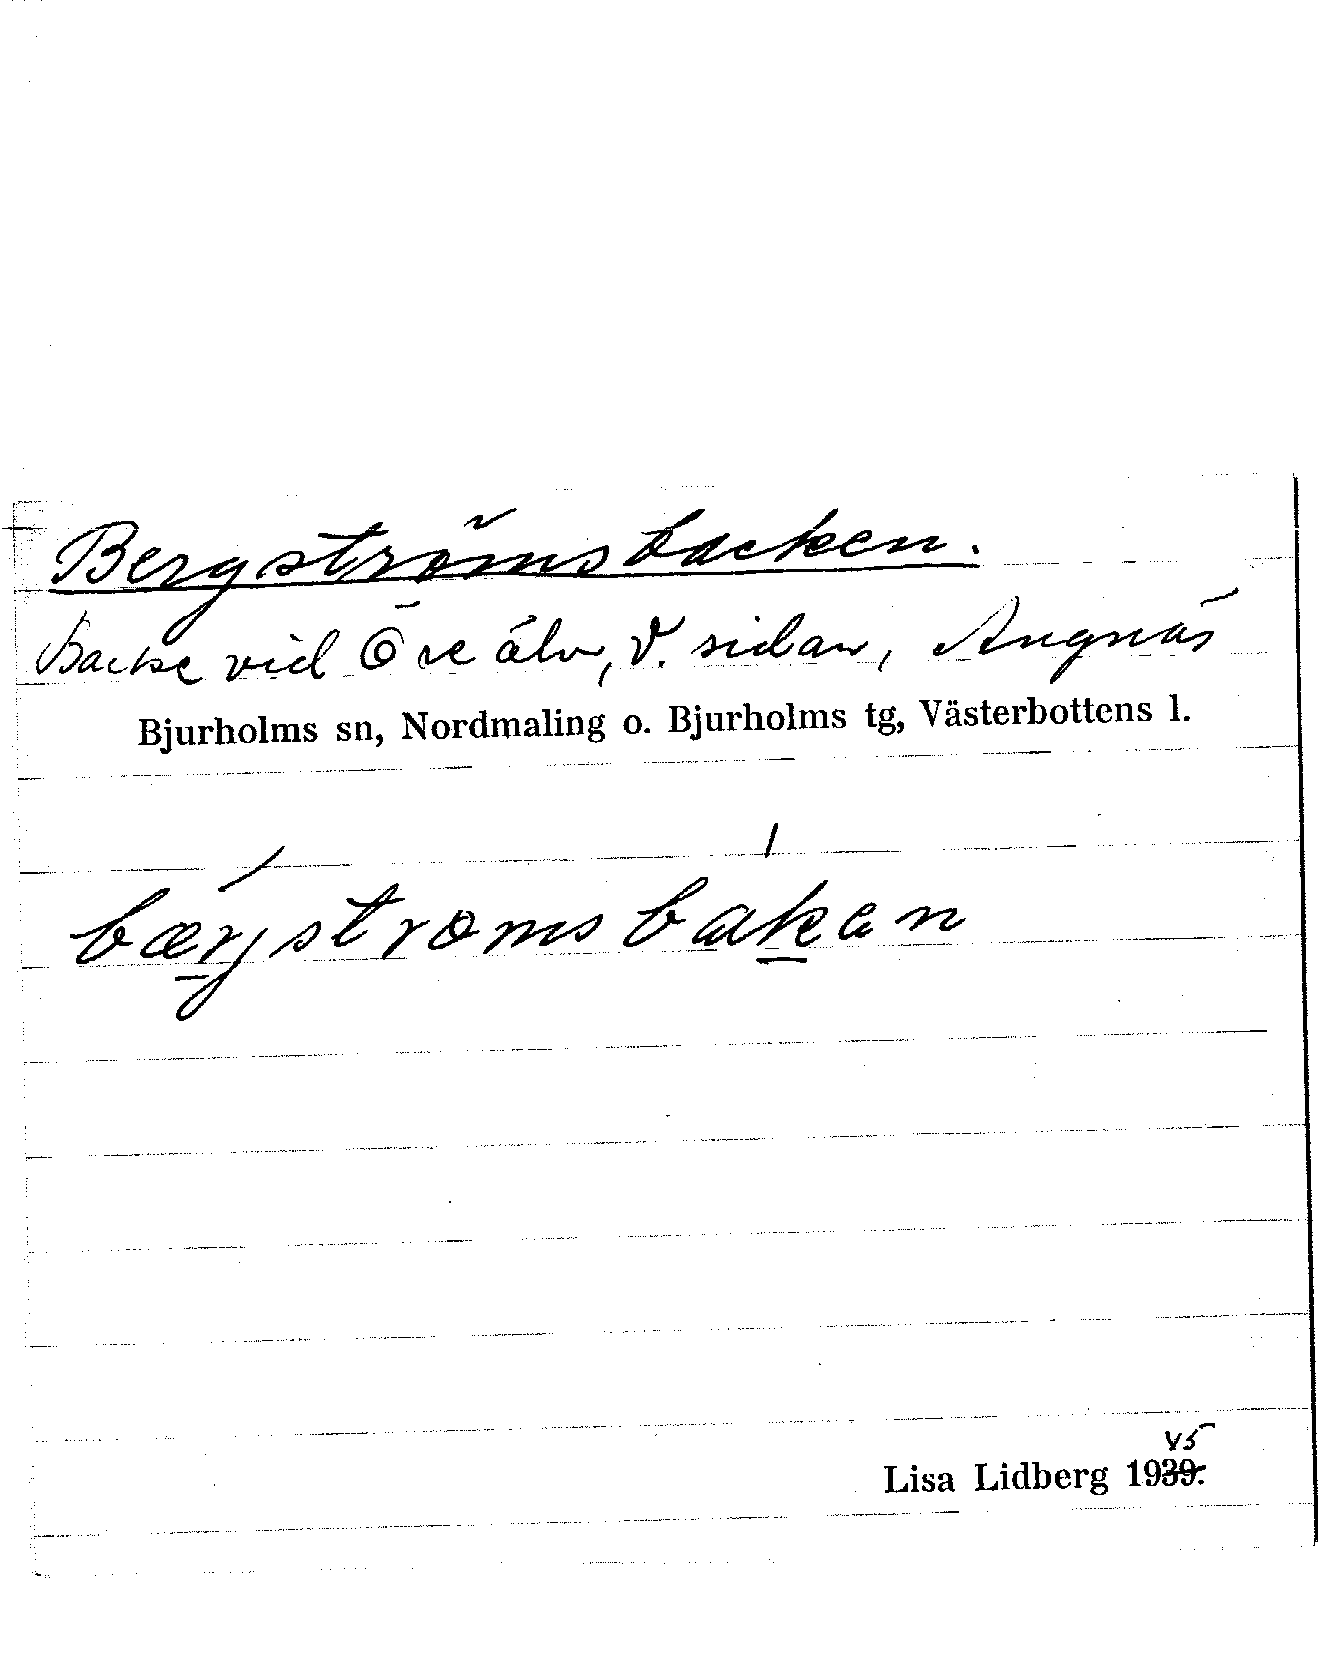 Bergströmsbacken.
Backe vid Öre älv, V. sidan, Angnäs
Bjurholms sn, Nordmaling o. Bjurholms tg, Västerbottens l.
bærjstrømsbakan
45
Lisa Lidberg 1939.